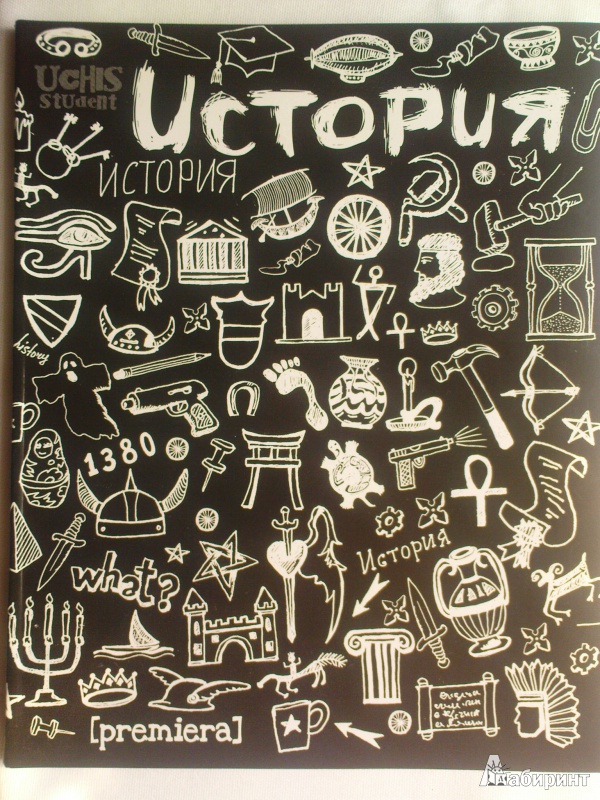 UCHIS
STUDENT
ИСТОРИЯ
ИСТОРИЯ
history
1380
what?
История
[premiera]
Лабиринт